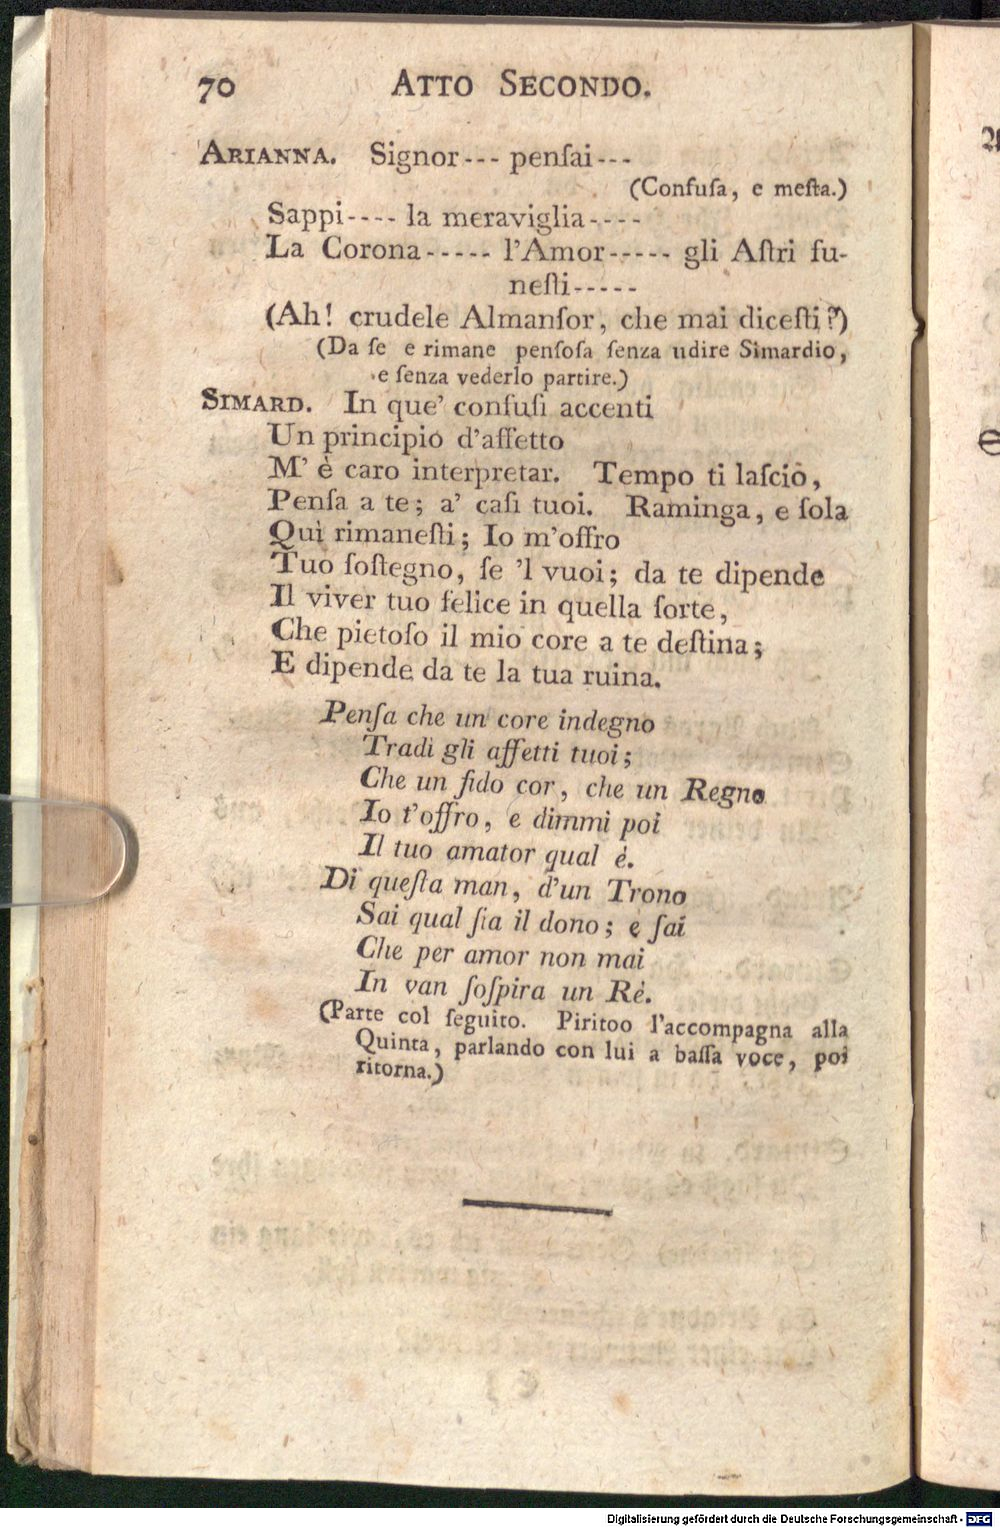 70 ATTO SECONDO.
ARIANNA. Signor--- penſai---
(Confuſa, e meſta.)
Sappi---- la meraviglia----
La Corona----- l'Amor----- gli Aſtri fu-
neſti-----
(Ah! crudele Almanſor, che mai diceſti?)
(Da ſe e rimane penſoſa ſenza udire Simardio,
e ſenza vederlo partire.)
SIMARD. In que' confuſi accenti
Un principio d'affetto
M' è caro interpretar. Tempo ti laſcio,
Penſa a te; a' caſi tuoi. Raminga, e ſola
Quì rimaneſti; Io m'offro
Tuo ſoſtegno, ſe 'l vuoi; da te dipende
Il viver tuo felice in quella ſorte,
Che pietoſo il mio core a te deſtina;
E dipende da te la tua ruina.
Penſa che un core indegno
Tradì gli affetti tuoi;
Che un fido cor, che un Regno
Io t'offro, e dimmi poi
Il tuo amator qual è.
Di queſta man, d'un Trono
Sai qual ſia il dono; e ſai
Che per amor non mai
In van ſoſpira un Rè.
(Parte col ſeguito. Piritoo l'accompagna alla
Quinta, parlando con lui a baſſa voce, poi
ritorna.)
Digitalisierung gefördert durch die Deutsche Forschungsgemeinschaft - DFG